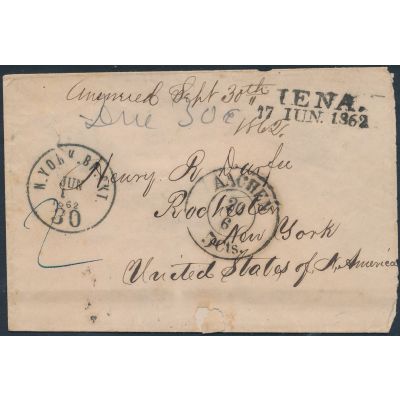 Answered Sept 30th
1862.
Due 30c
IENA.
17 IUN. 1862
N. YORK. BR. PKT.
JUN
1862
30
AACHEN
20
6
Henry R.
Rochester
New York
United States of N. America